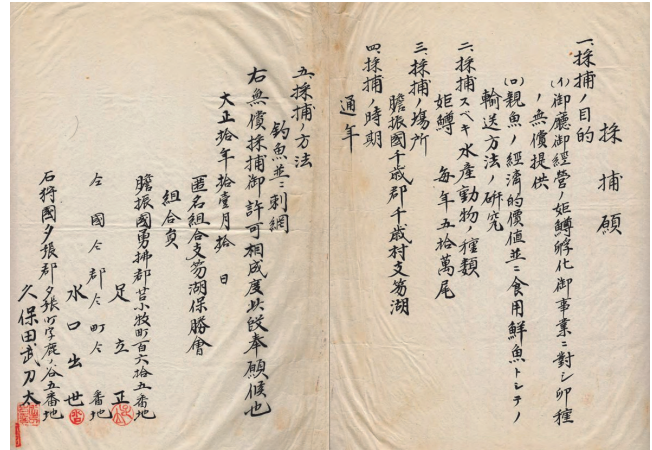 採捕願
一、採捕ノ目的
(イ)御廳御經營ノ姫鱒孵化御事業ニ對シ卵種
ノ無償提供
(ロ)親魚ノ經濟的價値並ニ食用鮮魚トシテノ
輸送方法ノ研究
二、採捕スベキ水産動物ノ種類
姫鱒 毎年五拾萬尾
三、採捕ノ場所
膽振國千歳郡千歳村支笏湖
四、採捕ノ時期
通年
五、採捕ノ方法
釣魚並ニ刺網
右無償採捕御許可相成度此段奉願候也
大正拾年拾壹月拾 日
匿名組合支笏湖保勝會
組合員
膽振國勇拂郡苫小牧町百六拾五番地
足立正
仝國仝郡仝町仝 番地
水口出世
石狩國夕張郡夕張町字鹿ノ谷五番地
久保田武刀太